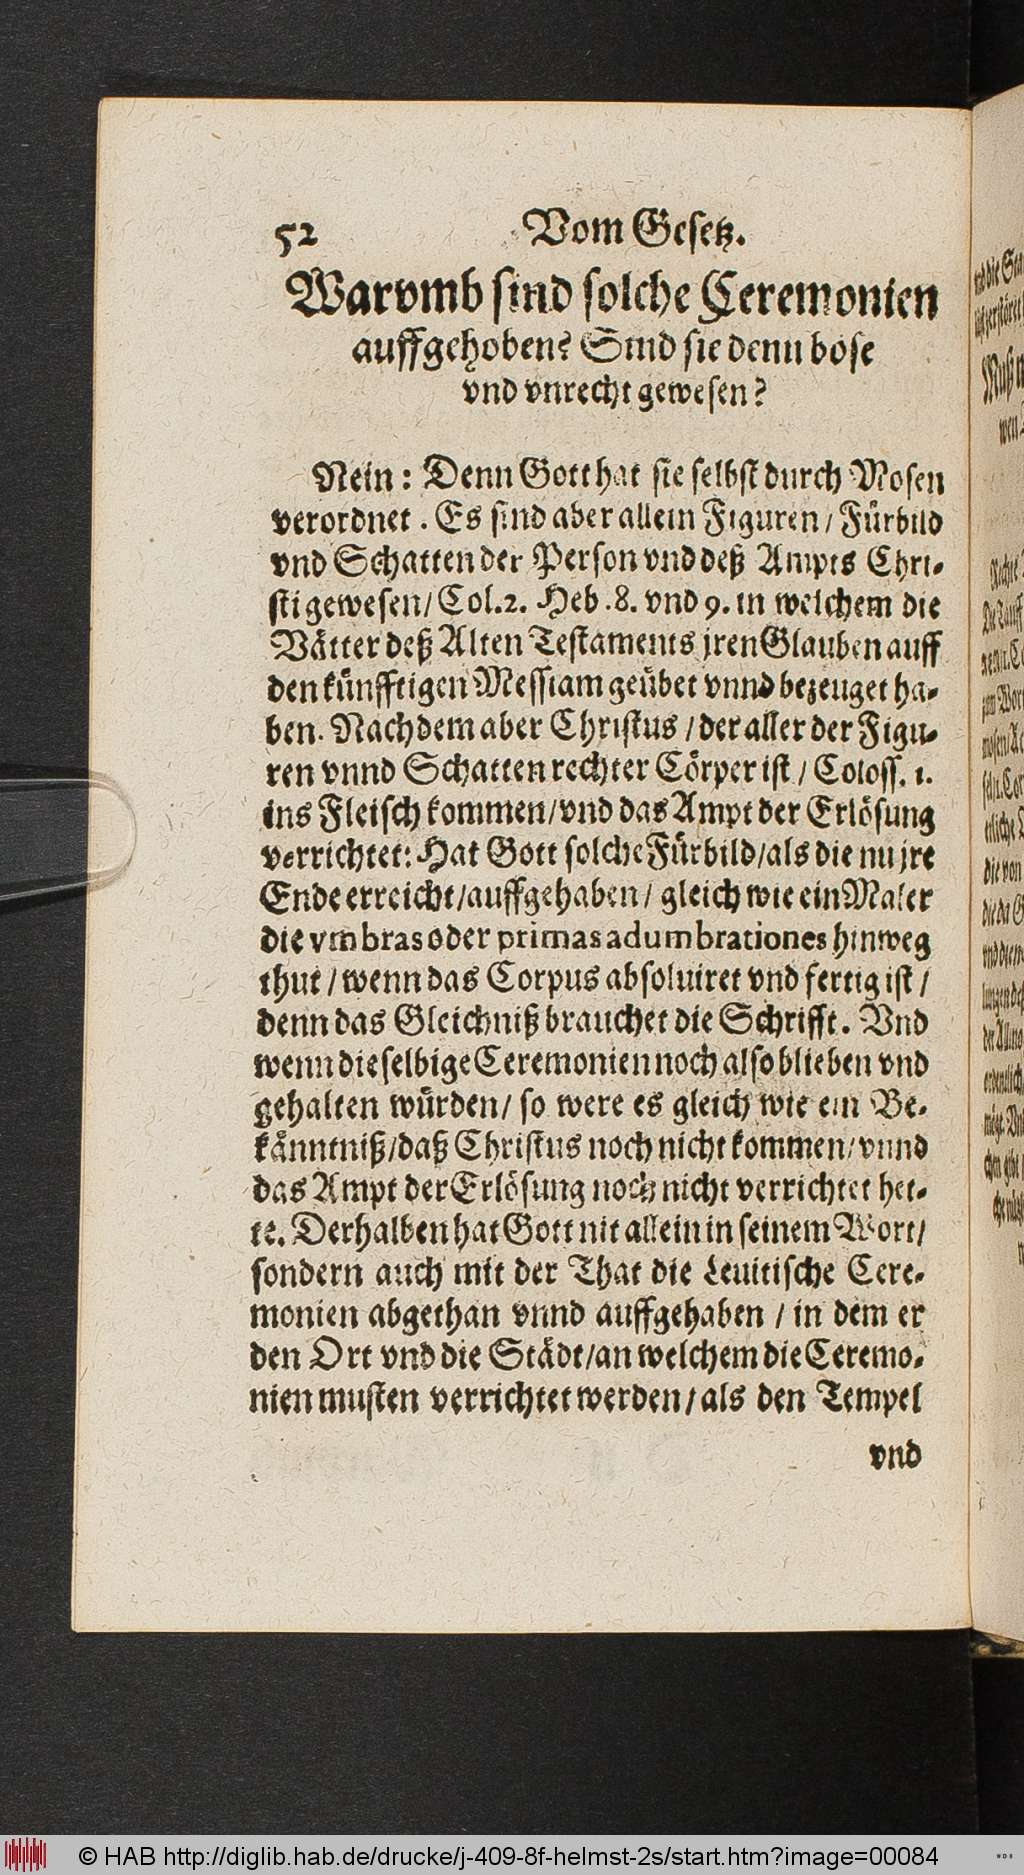 52 Vom Gesetz.
Warvmb sind solche Ceremonien
auffgehoben? Sind sie denn böse
vnd vnrecht gewesen?
Nein: Denn Gott hat sie selbst durch Mosen
verordnet. Es sind aber allein Figuren / Fürbild
vnd Schatten der Person vnd deß Ampts Chri-
sti gewesen / Col. 2. Heb. 8. vnd 9. in welchem die
Vätter deß Alten Testaments jren Glauben auff
den künfftigen Messiam geübet vnnd bezeuget ha-
ben. Nach dem aber Christus / der aller der Figu-
ren vnnd Schatten rechter Cörper ist / Coloss. 1.
ins Fleisch kommen / vnd das Ampt der Erlösung
verrichtet: Hat Gott solche Fürbild / als die nu jre
Ende erreicht / auffgehaben / gleich wie ein Maler
die vmbras oder primas adumbrationes hinweg
thut / wenn das Corpus absoluiret vnd fertig ist /
denn das Gleichniß brauchet die Schrifft. Vnd
wenn dieselbige Ceremonien noch also blieben vnd
gehalten würden / so were es gleich wie ein Be-
känntniß / daß Christus noch nicht kommen / vnnd
das Ampt der Erlösung noch nicht verrichtet het-
te. Derhalben hat Gott nit allein in seinem Wort /
sondern auch mit der That die Leuitische Cere-
monien abgethan vnnd auffgehaben / in dem er
den Ort vnd die Städt / an welchem die Ceremo-
nien musten verrichtet werden / als den Tempel
vnd
© HAB http://diglib.hab.de/drucke/j-409-8f-helmst-2s/start.htm?image=00084